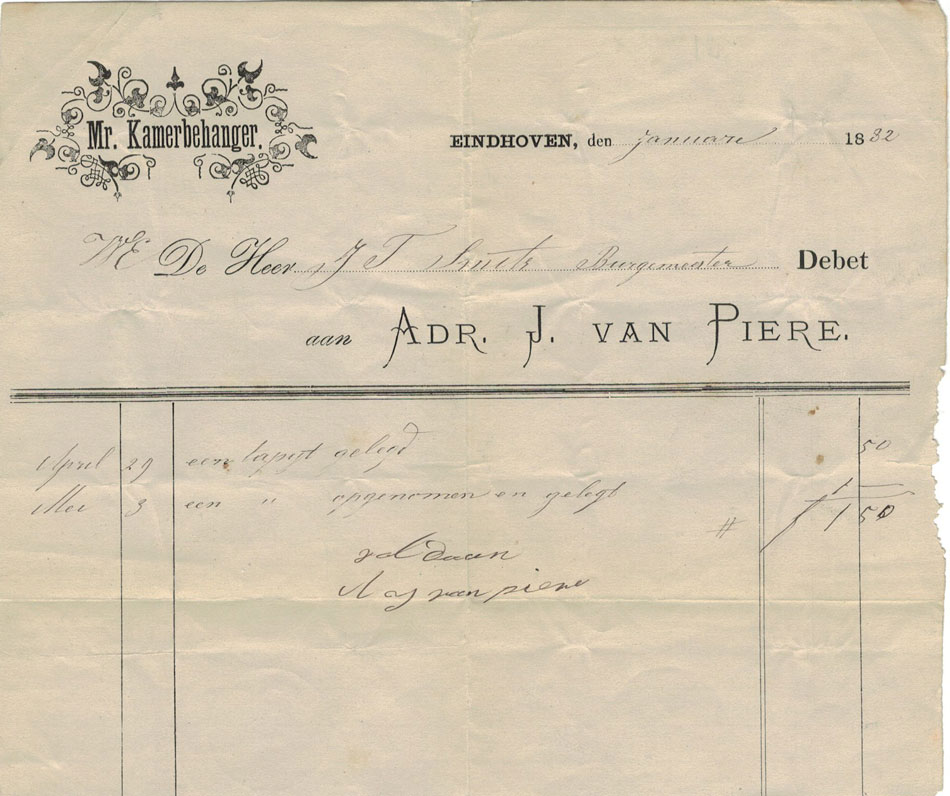 Mr. Kamerbehanger.
EINDHOVEN, den januari 1882
WE De Heer J T Smits Burgemeester Debet
aan ADR. J. VAN PIERE.
April 29 een tapyt gelegd 50
Mei 3 een " opgenomen en gelegt 1 —
# f 1 50
voldaan
A J van piere